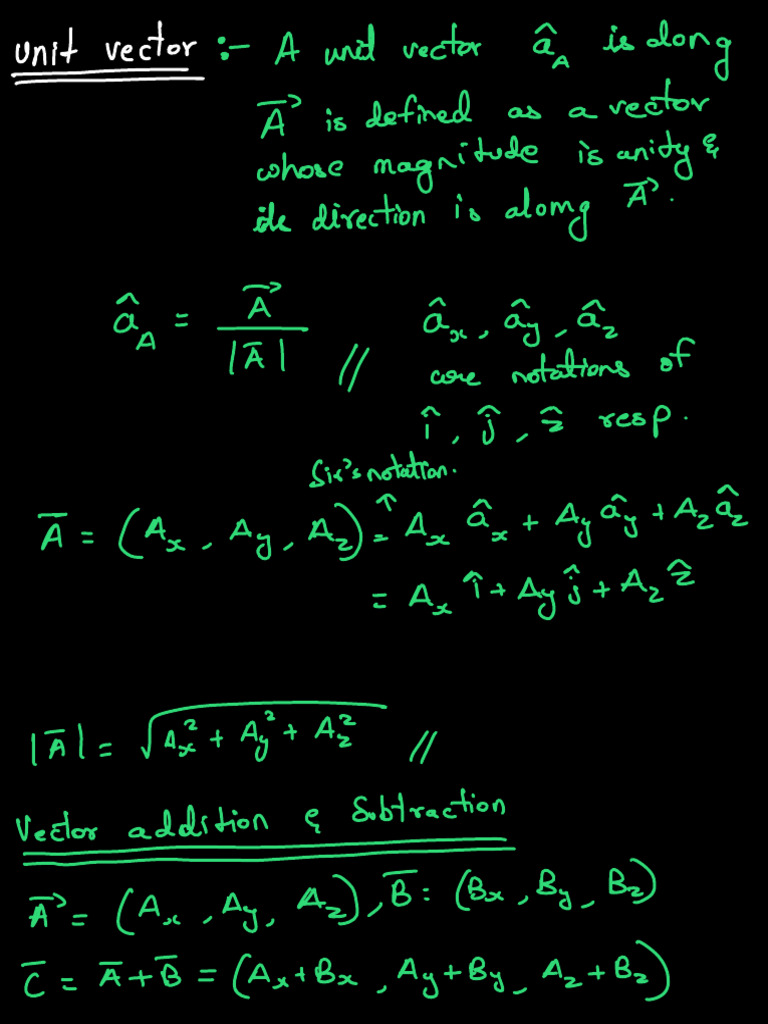 unit vector :- A unit vector â_A is along
A⃗ is defined as a vector
whose magnitude is unity &
direction is along A⃗.
â_A = A⃗ / |A̅| //
â_x, â_y, â_z
are notations of
î, ĵ, ẑ resp.
Sir's notation.
A̅ = (A_x, A_y, A_z) = A_x â_x + A_y â_y + A_z â_z
= A_x î + A_y ĵ + A_z ẑ
|A̅| = √(A_x² + A_y² + A_z²) //
Vector addition & Subtraction
A⃗ = (A_x, A_y, A_z), B̅ = (B_x, B_y, B_z)
C̅ = A̅ + B̅ = (A_x + B_x, A_y + B_y, A_z + B_z)